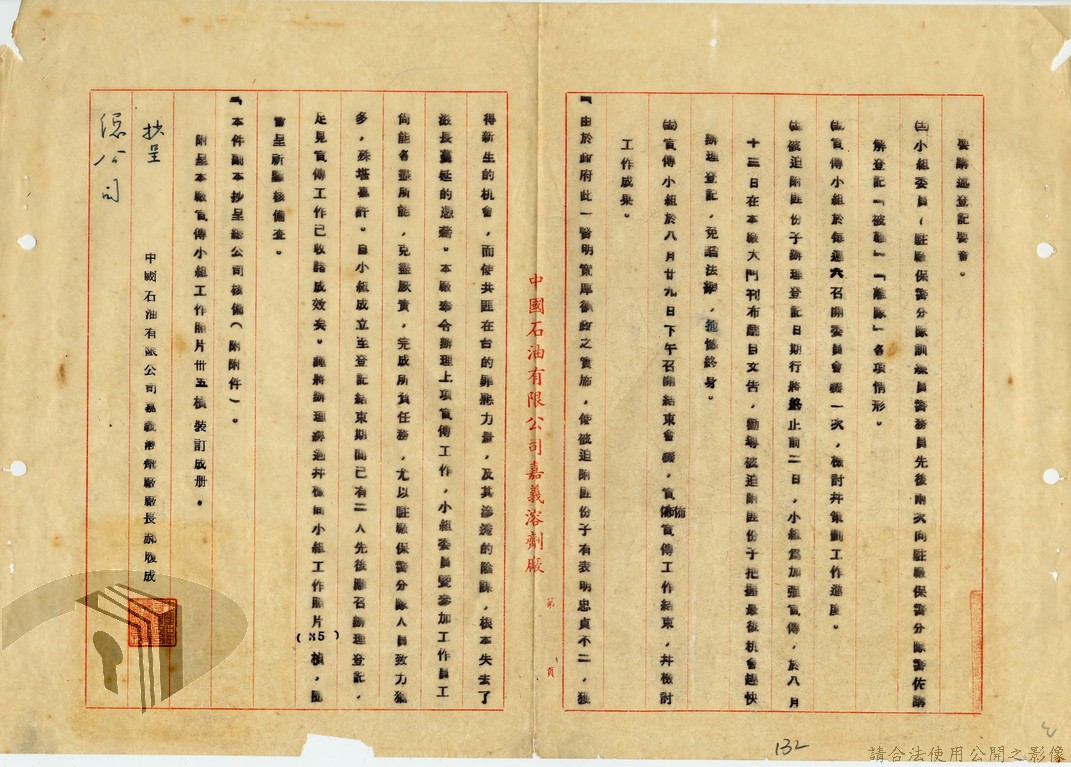 要講述登記要旨。
㈡小組委員(駐廠保警分隊訓練員警務員先後兩次向駐廠保警分隊警佐講
解登記「被迫」「離隊」各項情形。
宣傳小組於每週六召開委員會議一次,檢討并策劃工作進度。
被迫附匪份子辦理登記日期行將終止前二日,小組為加强宣傳,於八月
十三日在本廠大門刊布醒目文告,勸導被迫附匪份子把握最後机會趕快
辦理登記,免罹法網,抱憾終身。
宣傳小組於八月廿九日下午召開結束會議,宣佈宣傳工作結束,并檢討
工作成果。
由於政府此一賢明寬厚德政之實施,使被迫附匪份子有表明忠貞不二,獲
中國石油有限公司嘉義溶劑廠
第 頁
得新生的机會,而使共匪在台的罪惡力量,及其滲透的陰謀,根本失去了
滋長蔓延的憑藉。本廠奉令辦理上項宣傳工作,小組委員暨參加工作員工
尚能各盡所能,克盡厥責,完成所負任務,尤以駐廠保警分隊人員致力獨
多,殊堪嘉許。自小組成立至登記結束期間已有二人先後應召辦理登記,
足見宣傳工作已收諸成效矣。謹將辦理經過并檢同小組工作照片(35)楨,隨
電呈祈鑒核備查。
本件副本抄呈總公司核備(附附件)。
附呈本廠宣傳小組工作照片卅五楨裝訂成册。
抄呈
總公司
中國石油有限公司嘉義溶劑廠廠長郝履成
132
請合法使用公開之影像